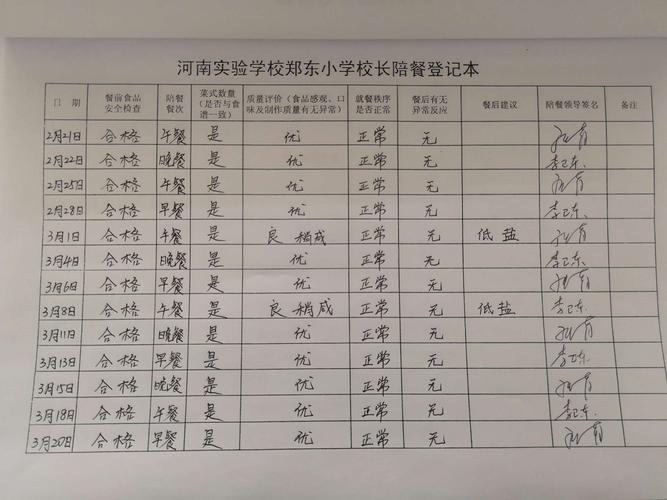 河南实验学校郑东小学校长陪餐登记本
日 期 餐前食品安全检查 陪餐餐次 菜式数量（是否与食谱一致） 质量评价（食品感观、口味及制作质量有无异常） 就餐秩序是否正常 餐后有无异常反应 餐后建议 陪餐领导签名 备注
2月21日 合格 午餐 是 优 正常 无
2月22日 合格 晚餐 是 优 正常 无 李卫东
2月25日 合格 午餐 是 优 正常 无
2月28日 合格 早餐 是 优 正常 无 李卫东
3月1日 合格 午餐 是 良 稍咸 正常 无 低盐
3月4日 合格 晚餐 是 优 正常 无 李卫东
3月6日 合格 早餐 是 优 正常 无
3月8日 合格 午餐 是 良 稍咸 正常 无 低盐 李卫东
3月11日 合格 晚餐 是 优 正常 无
3月13日 合格 早餐 是 优 正常 无 李卫东
3月15日 合格 晚餐 是 优 正常 无
3月18日 合格 午餐 是 优 正常 无 李卫东
3月20日 合格 早餐 是 优 正常 无